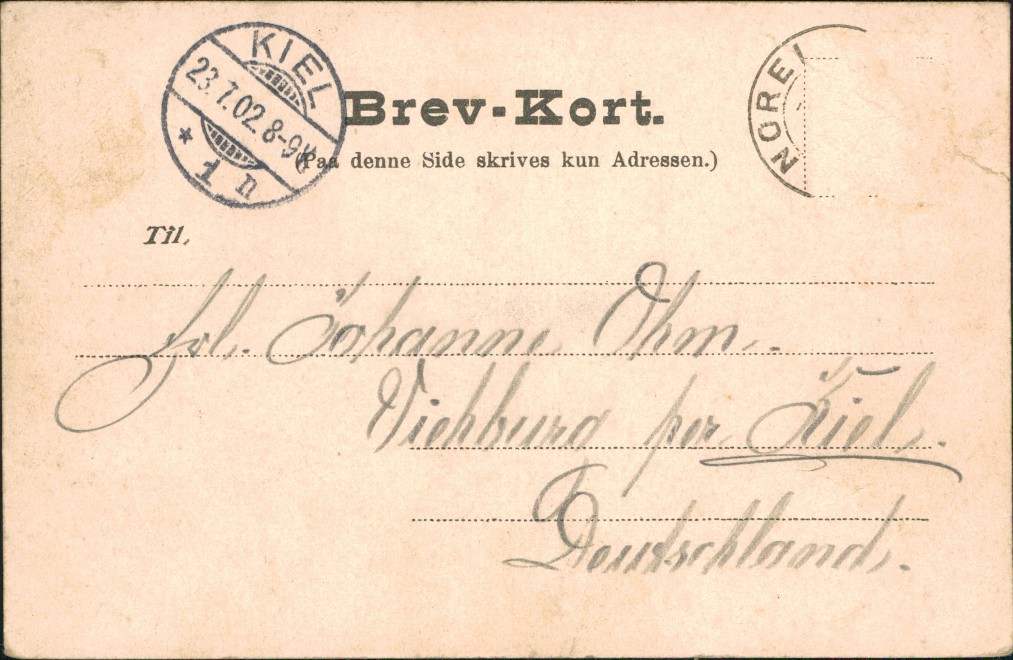 KIEL
23.7.02. 8-9N
* 1 n
NORE
Brev-Kort.
(Paa denne Side skrives kun Adressen.)
Til,
Frl. Johanne Ohm.
Viehburg per Kiel.
Deutschland.